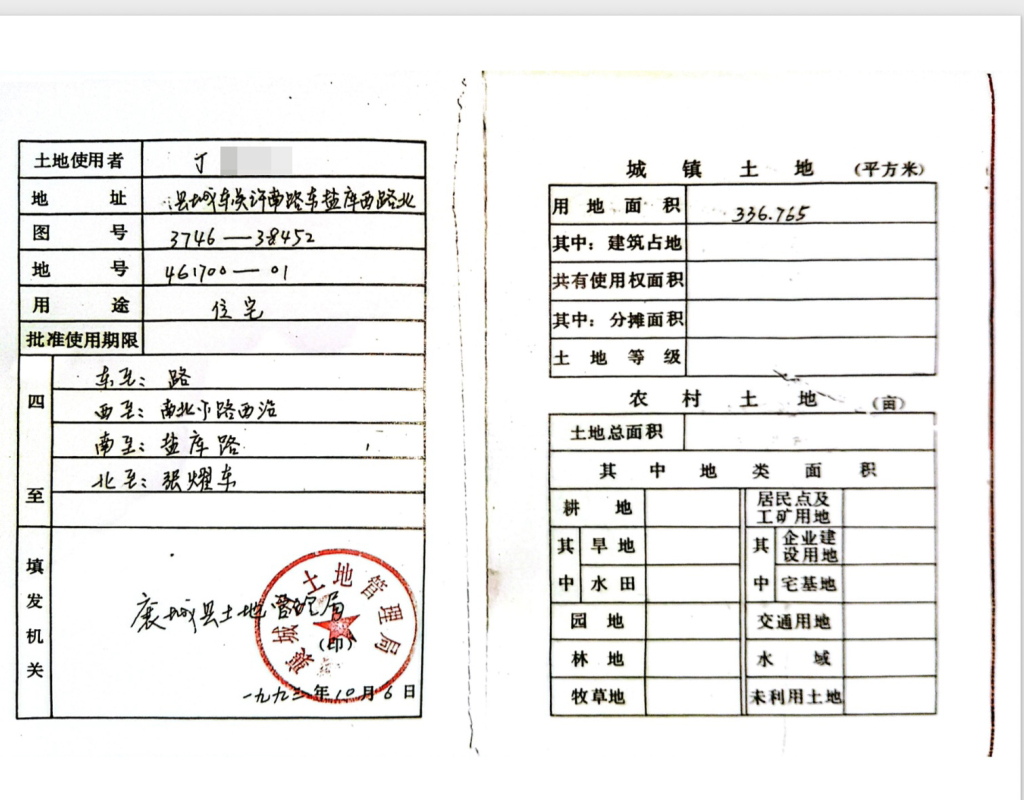 土地使用者 丁
地址 县城东关许南路东盐库西路北
图号 3746—38452
地号 461700—01
用途 住宅
批准使用期限
四至
东至：路
西至：南北小路西沿
南至：盐库路
北至：张耀东
填发机关
襄城县土地管理局
(印)
襄城县土地管理局
一九九三年10月6日
城镇土地 (平方米)
用地面积 336.765
其中：建筑占地
共有使用权面积
其中：分摊面积
土地等级
农村土地 (亩)
土地总面积
其中地类面积
耕地 居民点及工矿用地
其中 旱地 其中 企业建设用地
水田 宅基地
园地 交通用地
林地 水域
牧草地 未利用土地